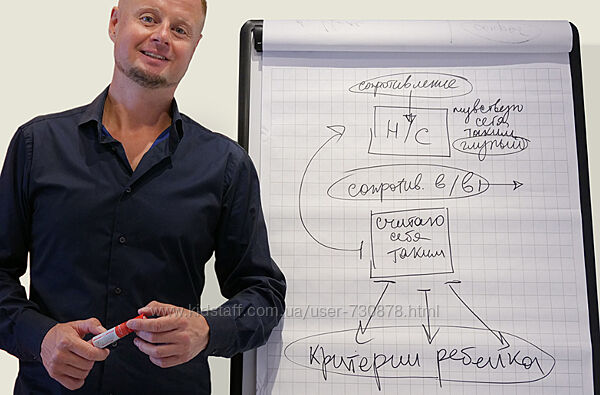 сопротивление
Н/С
чувствую
себя
таким
глупый
сопротив. в/вı
считаю
себя
таким
критерии ребенка
www.kidstaff.com.ua/user-730878.html